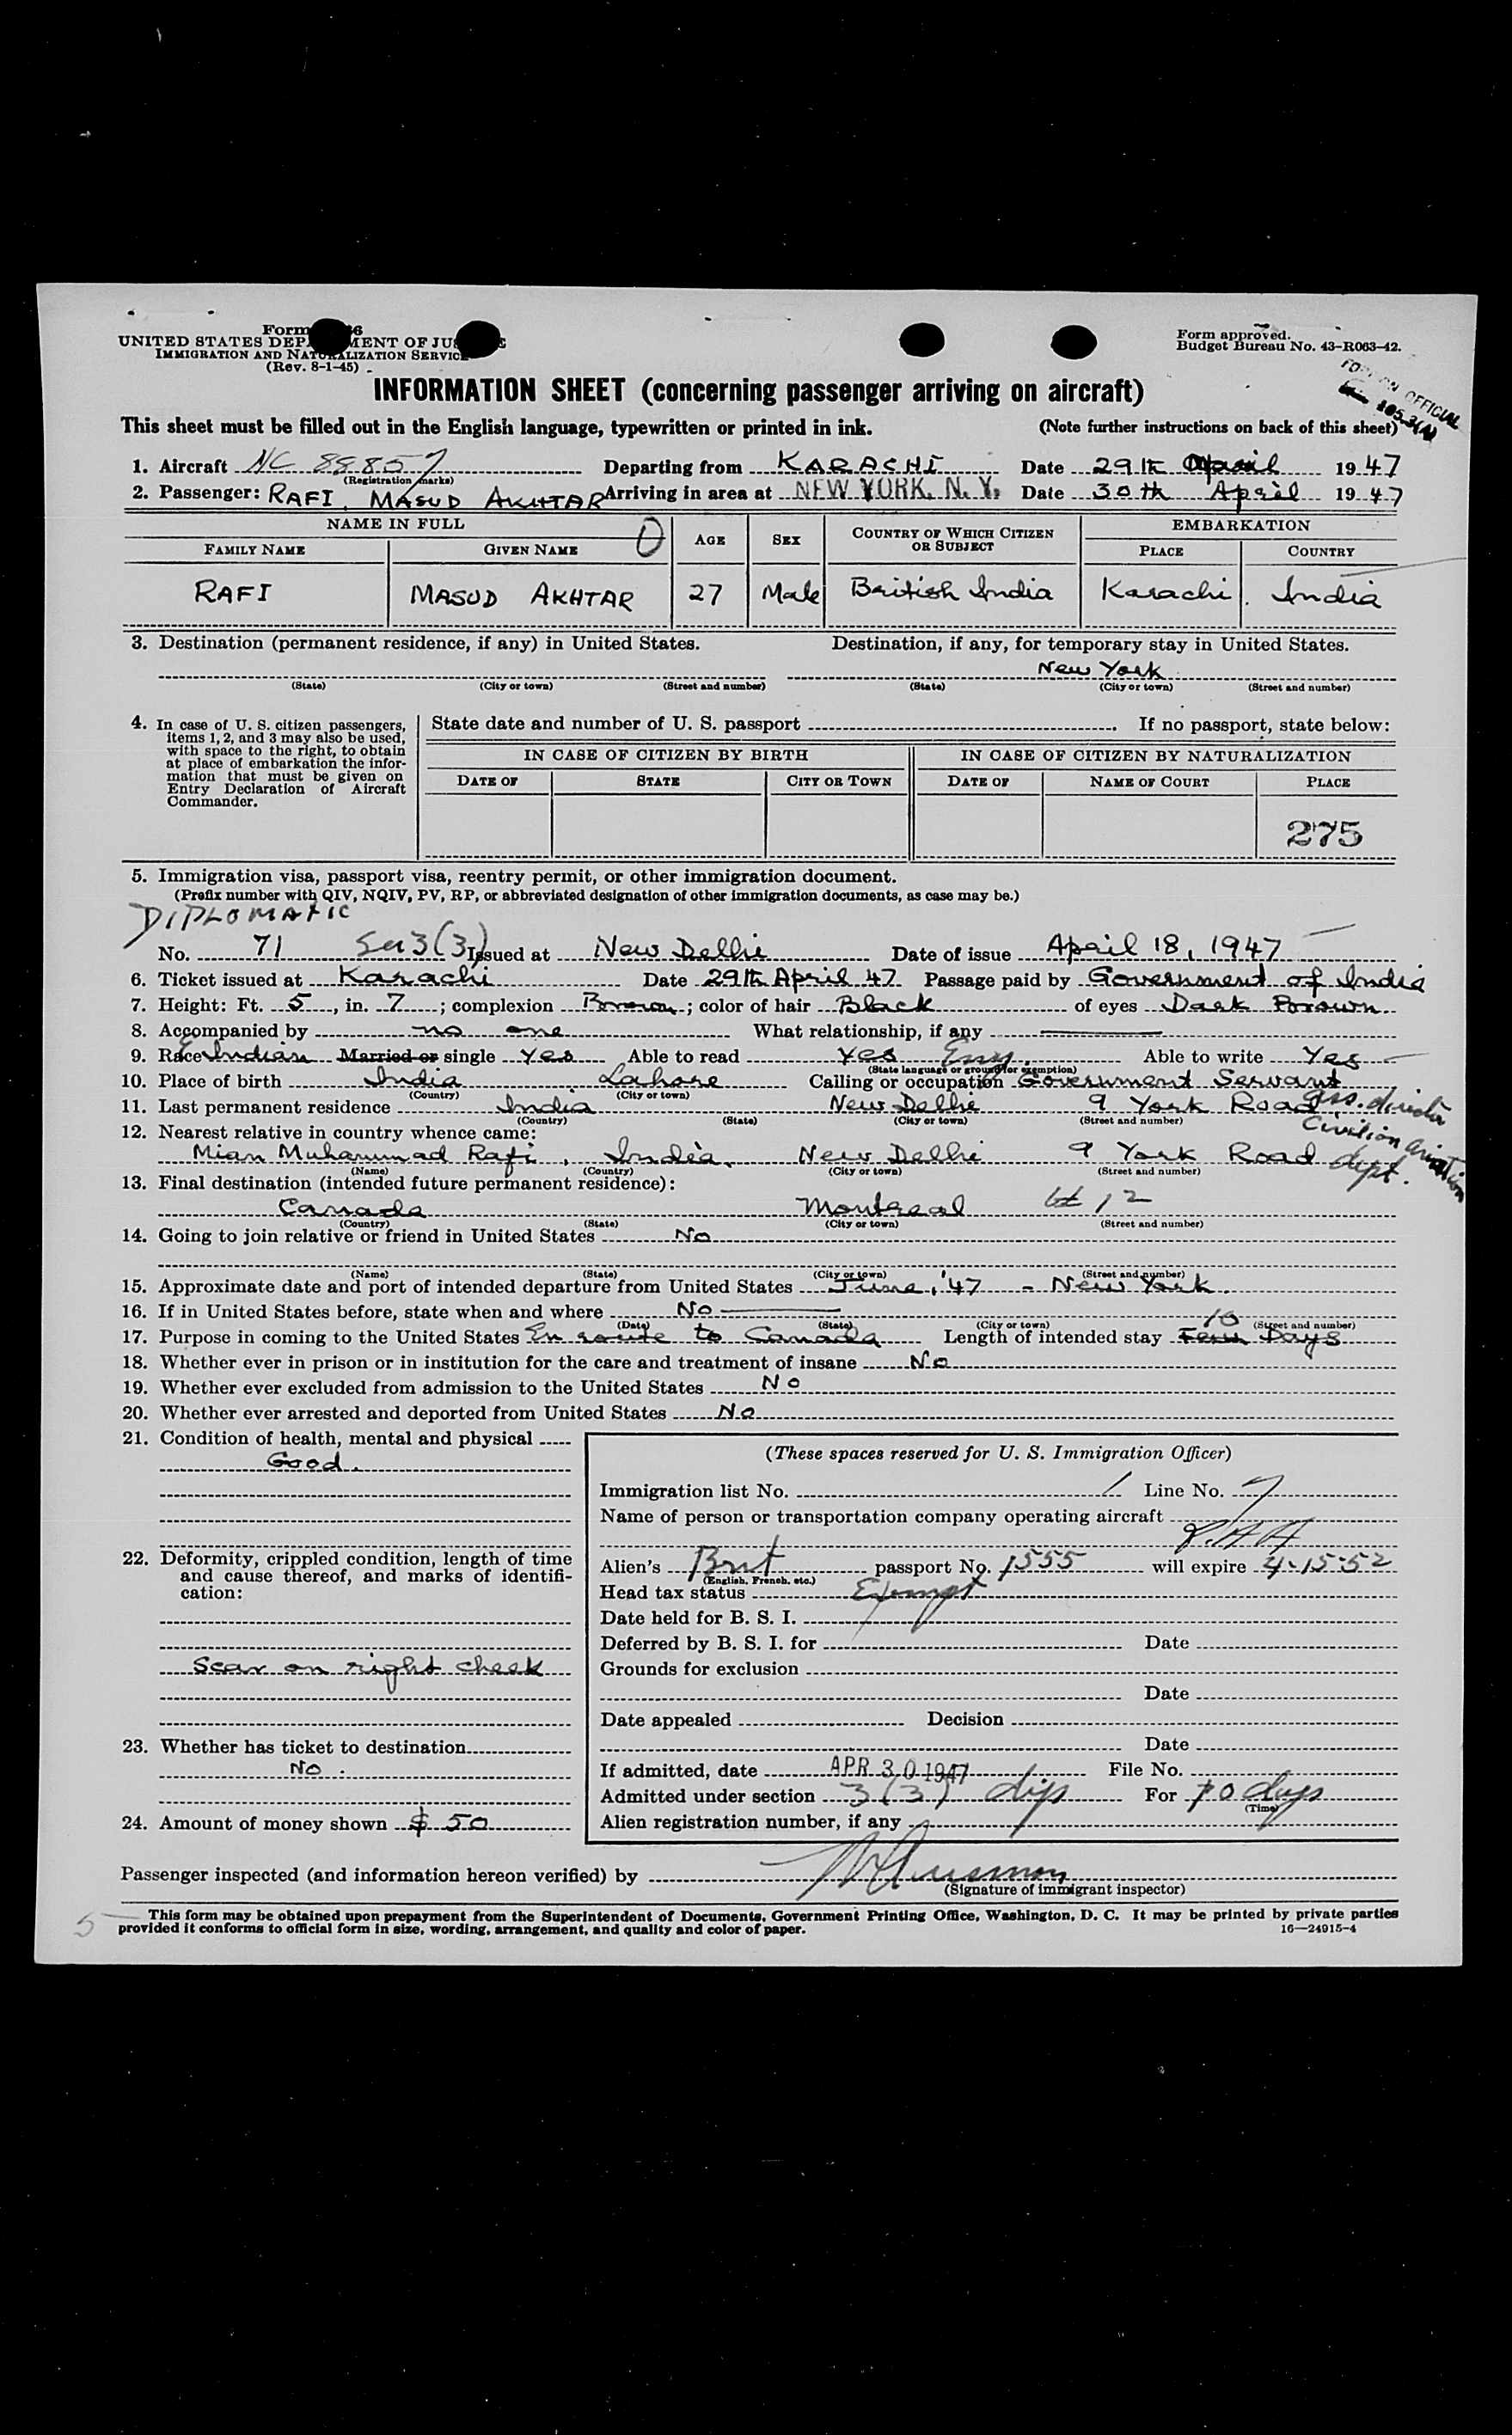 Form 66
UNITED STATES DEPARTMENT OF JUSTICE
IMMIGRATION AND NATURALIZATION SERVICE
(Rev. 8-1-45)
Form approved.
Budget Bureau No. 43-R063-42.
OFFICIAL
INFORMATION SHEET (concerning passenger arriving on aircraft)
This sheet must be filled out in the English language, typewritten or printed in ink. (Note further instructions on back of this sheet)
1. Aircraft NC 88857 Departing from KARACHI Date 29th April 1947
(Registration marks)
2. Passenger: RAFI, MASUD AKHTAR Arriving in area at NEW YORK, N. Y. Date 30th April 1947
NAME IN FULL AGE SEX COUNTRY OF WHICH CITIZEN OR SUBJECT EMBARKATION
FAMILY NAME GIVEN NAME PLACE COUNTRY
RAFI MASUD AKHTAR 27 Male British India Karachi India
3. Destination (permanent residence, if any) in United States. Destination, if any, for temporary stay in United States.
New York
(State) (City or town) (Street and number) (State) (City or town) (Street and number)
4. In case of U. S. citizen passengers, items 1, 2, and 3 may also be used, with space to the right, to obtain at place of embarkation the information that must be given on Entry Declaration of Aircraft Commander.
State date and number of U. S. passport If no passport, state below:
IN CASE OF CITIZEN BY BIRTH IN CASE OF CITIZEN BY NATURALIZATION
DATE OF STATE CITY OR TOWN DATE OF NAME OF COURT PLACE
275
5. Immigration visa, passport visa, reentry permit, or other immigration document.
(Prefix number with QIV, NQIV, PV, RP, or abbreviated designation of other immigration documents, as case may be.)
DIPLOMATIC
No. 71 Sec 3(3) Issued at New Delhi Date of issue April 18, 1947
6. Ticket issued at Karachi Date 29th April 47 Passage paid by Government of India
7. Height: Ft. 5, in. 7; complexion Brown; color of hair Black of eyes Dark Brown
8. Accompanied by no one What relationship, if any
9. Race E Indian Married or single Yes Able to read Yes Eng. Able to write Yes
(State language or ground for exemption)
10. Place of birth India Lahore Calling or occupation Government Servant
(Country) (City or town)
ass. director civilian aviation dept.
11. Last permanent residence India New Delhi 9 York Road
(Country) (State) (City or town) (Street and number)
12. Nearest relative in country whence came:
Mian Muhammad Rafi, India, New Delhi 9 York Road
(Name) (Country) (City or town) (Street and number)
13. Final destination (intended future permanent residence):
Canada Montreal
(Country) (State) (City or town) (Street and number)
14. Going to join relative or friend in United States No
(Name) (State) (City or town) (Street and number)
15. Approximate date and port of intended departure from United States June, '47 - New York.
16. If in United States before, state when and where No
(Date) (State) (City or town) (Street and number)
17. Purpose in coming to the United States En route to Canada Length of intended stay Few 10 Days
18. Whether ever in prison or in institution for the care and treatment of insane No
19. Whether ever excluded from admission to the United States No
20. Whether ever arrested and deported from United States No
21. Condition of health, mental and physical
Good.
22. Deformity, crippled condition, length of time and cause thereof, and marks of identification:
Scar on right cheek
23. Whether has ticket to destination
No.
24. Amount of money shown $ 50
(These spaces reserved for U. S. Immigration Officer)
Immigration list No. 1 Line No. 7
Name of person or transportation company operating aircraft
P.A.A
Alien's Brit passport No. 1555 will expire 4-15-52
(English, French, etc.)
Head tax status Exempt
Date held for B. S. I.
Deferred by B. S. I. for Date
Grounds for exclusion
Date
Date appealed Decision
Date
If admitted, date APR 30 1947 File No.
Admitted under section 3(3) dip For 10 days
(Time)
Alien registration number, if any
Passenger inspected (and information hereon verified) by
(Signature of immigrant inspector)
5
This form may be obtained upon prepayment from the Superintendent of Documents, Government Printing Office, Washington, D. C. It may be printed by private parties
provided it conforms to official form in size, wording, arrangement, and quality and color of paper. 16—24915-4